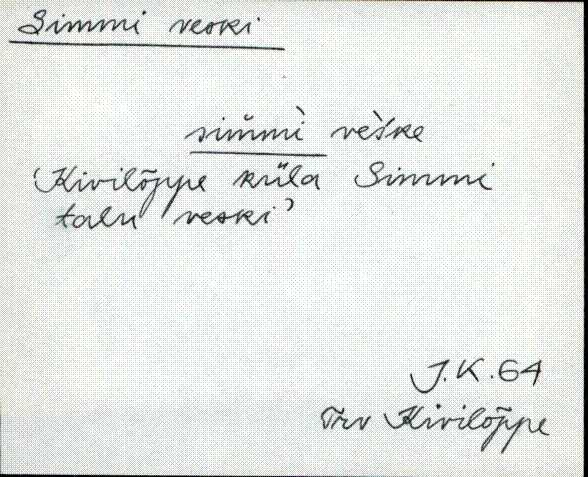 Simmi veski
sim̆mì vèśke
'Kivilõppe küla Simmi
talu veski'
J.K. 64
Trv Kivilõppe